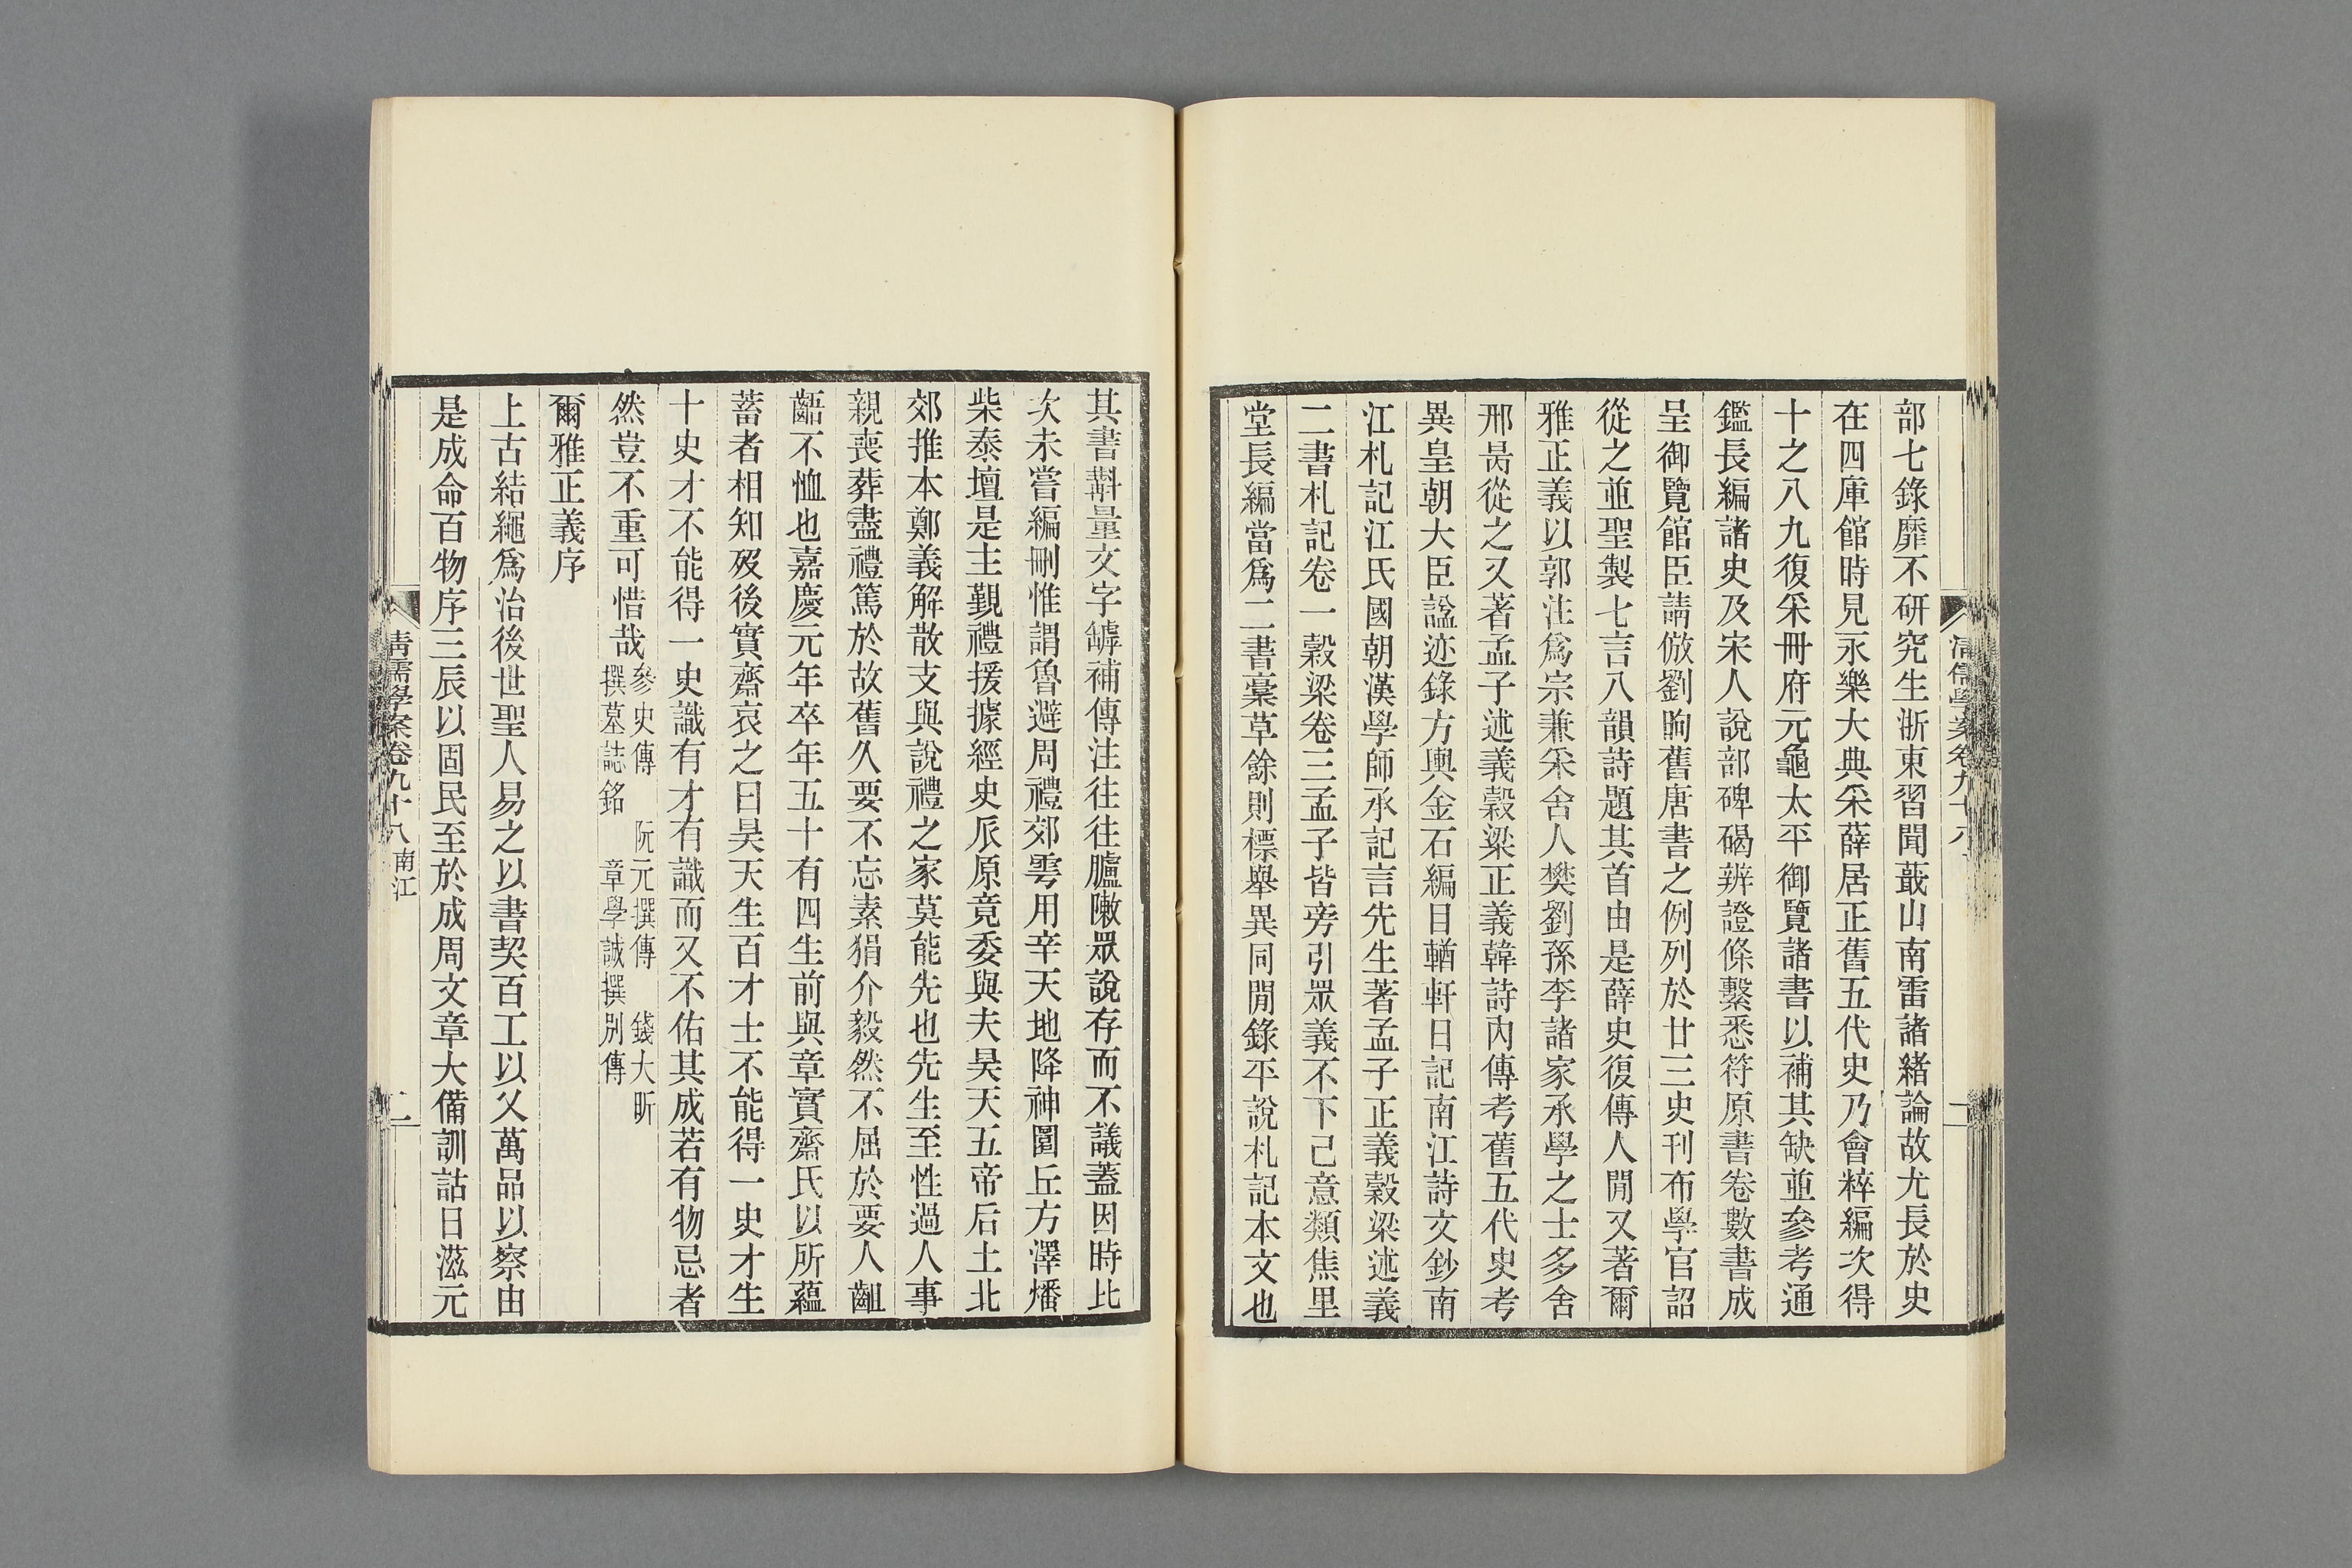 部七錄靡不研究生浙東習聞蕺山南雷諸緒論故尤長於史
在四庫館時見永樂大典采薛居正舊五代史乃會粹編次得
十之八九復采冊府元龜太平御覽諸書以補其缺並參考通
鑑長編諸史及宋人說部碑碣辨證條繫悉符原書卷數書成
呈御覽館臣請倣劉昫舊唐書之例列於廿三史刊布學官詔
從之並聖製七言八韻詩題其首由是薛史復傳人閒又著爾
雅正義以郭注爲宗兼采舍人樊劉孫李諸家承學之士多舍
邢昺從之又著孟子述義穀梁正義韓詩內傳考舊五代史考
異皇朝大臣諡迹錄方輿金石編目輶軒日記南江詩文鈔南
江札記江氏國朝漢學師承記言先生著孟子正義穀梁述義
二書札記卷一穀梁卷三孟子皆旁引眾義不下己意類焦里
堂長編當爲二書稾草餘則標舉異同閒錄平說札記本文也
清儒學案卷九十八
其書斠量文字罅補傳注往往臚敶眾說存而不議蓋因時比
次未嘗編刪惟謂魯避周禮郊雩用辛天地降神圜丘方澤燔
柴泰壇是主覲禮援據經史𠂢原竟委與夫昊天五帝后土北
郊推本鄭義解散支與說禮之家莫能先也先生至性過人事
親喪葬盡禮篤於故舊久要不忘素狷介毅然不屈於要人齟
齬不恤也嘉慶元年卒年五十有四生前與章實齋氏以所蘊
蓄者相知歿後實齋哀之曰昊天生百才士不能得一史才生
十史才不能得一史識有才有識而又不佑其成若有物忌者
然豈不重可惜哉參史傳 阮元撰傳 錢大昕
撰墓誌銘 章學誠撰別傳
爾雅正義序
上古結繩爲治後世聖人易之以書契百工以乂萬品以察由
是成命百物序三辰以固民至於成周文章大備訓詁日滋元
清儒學案卷九十八 南江 二